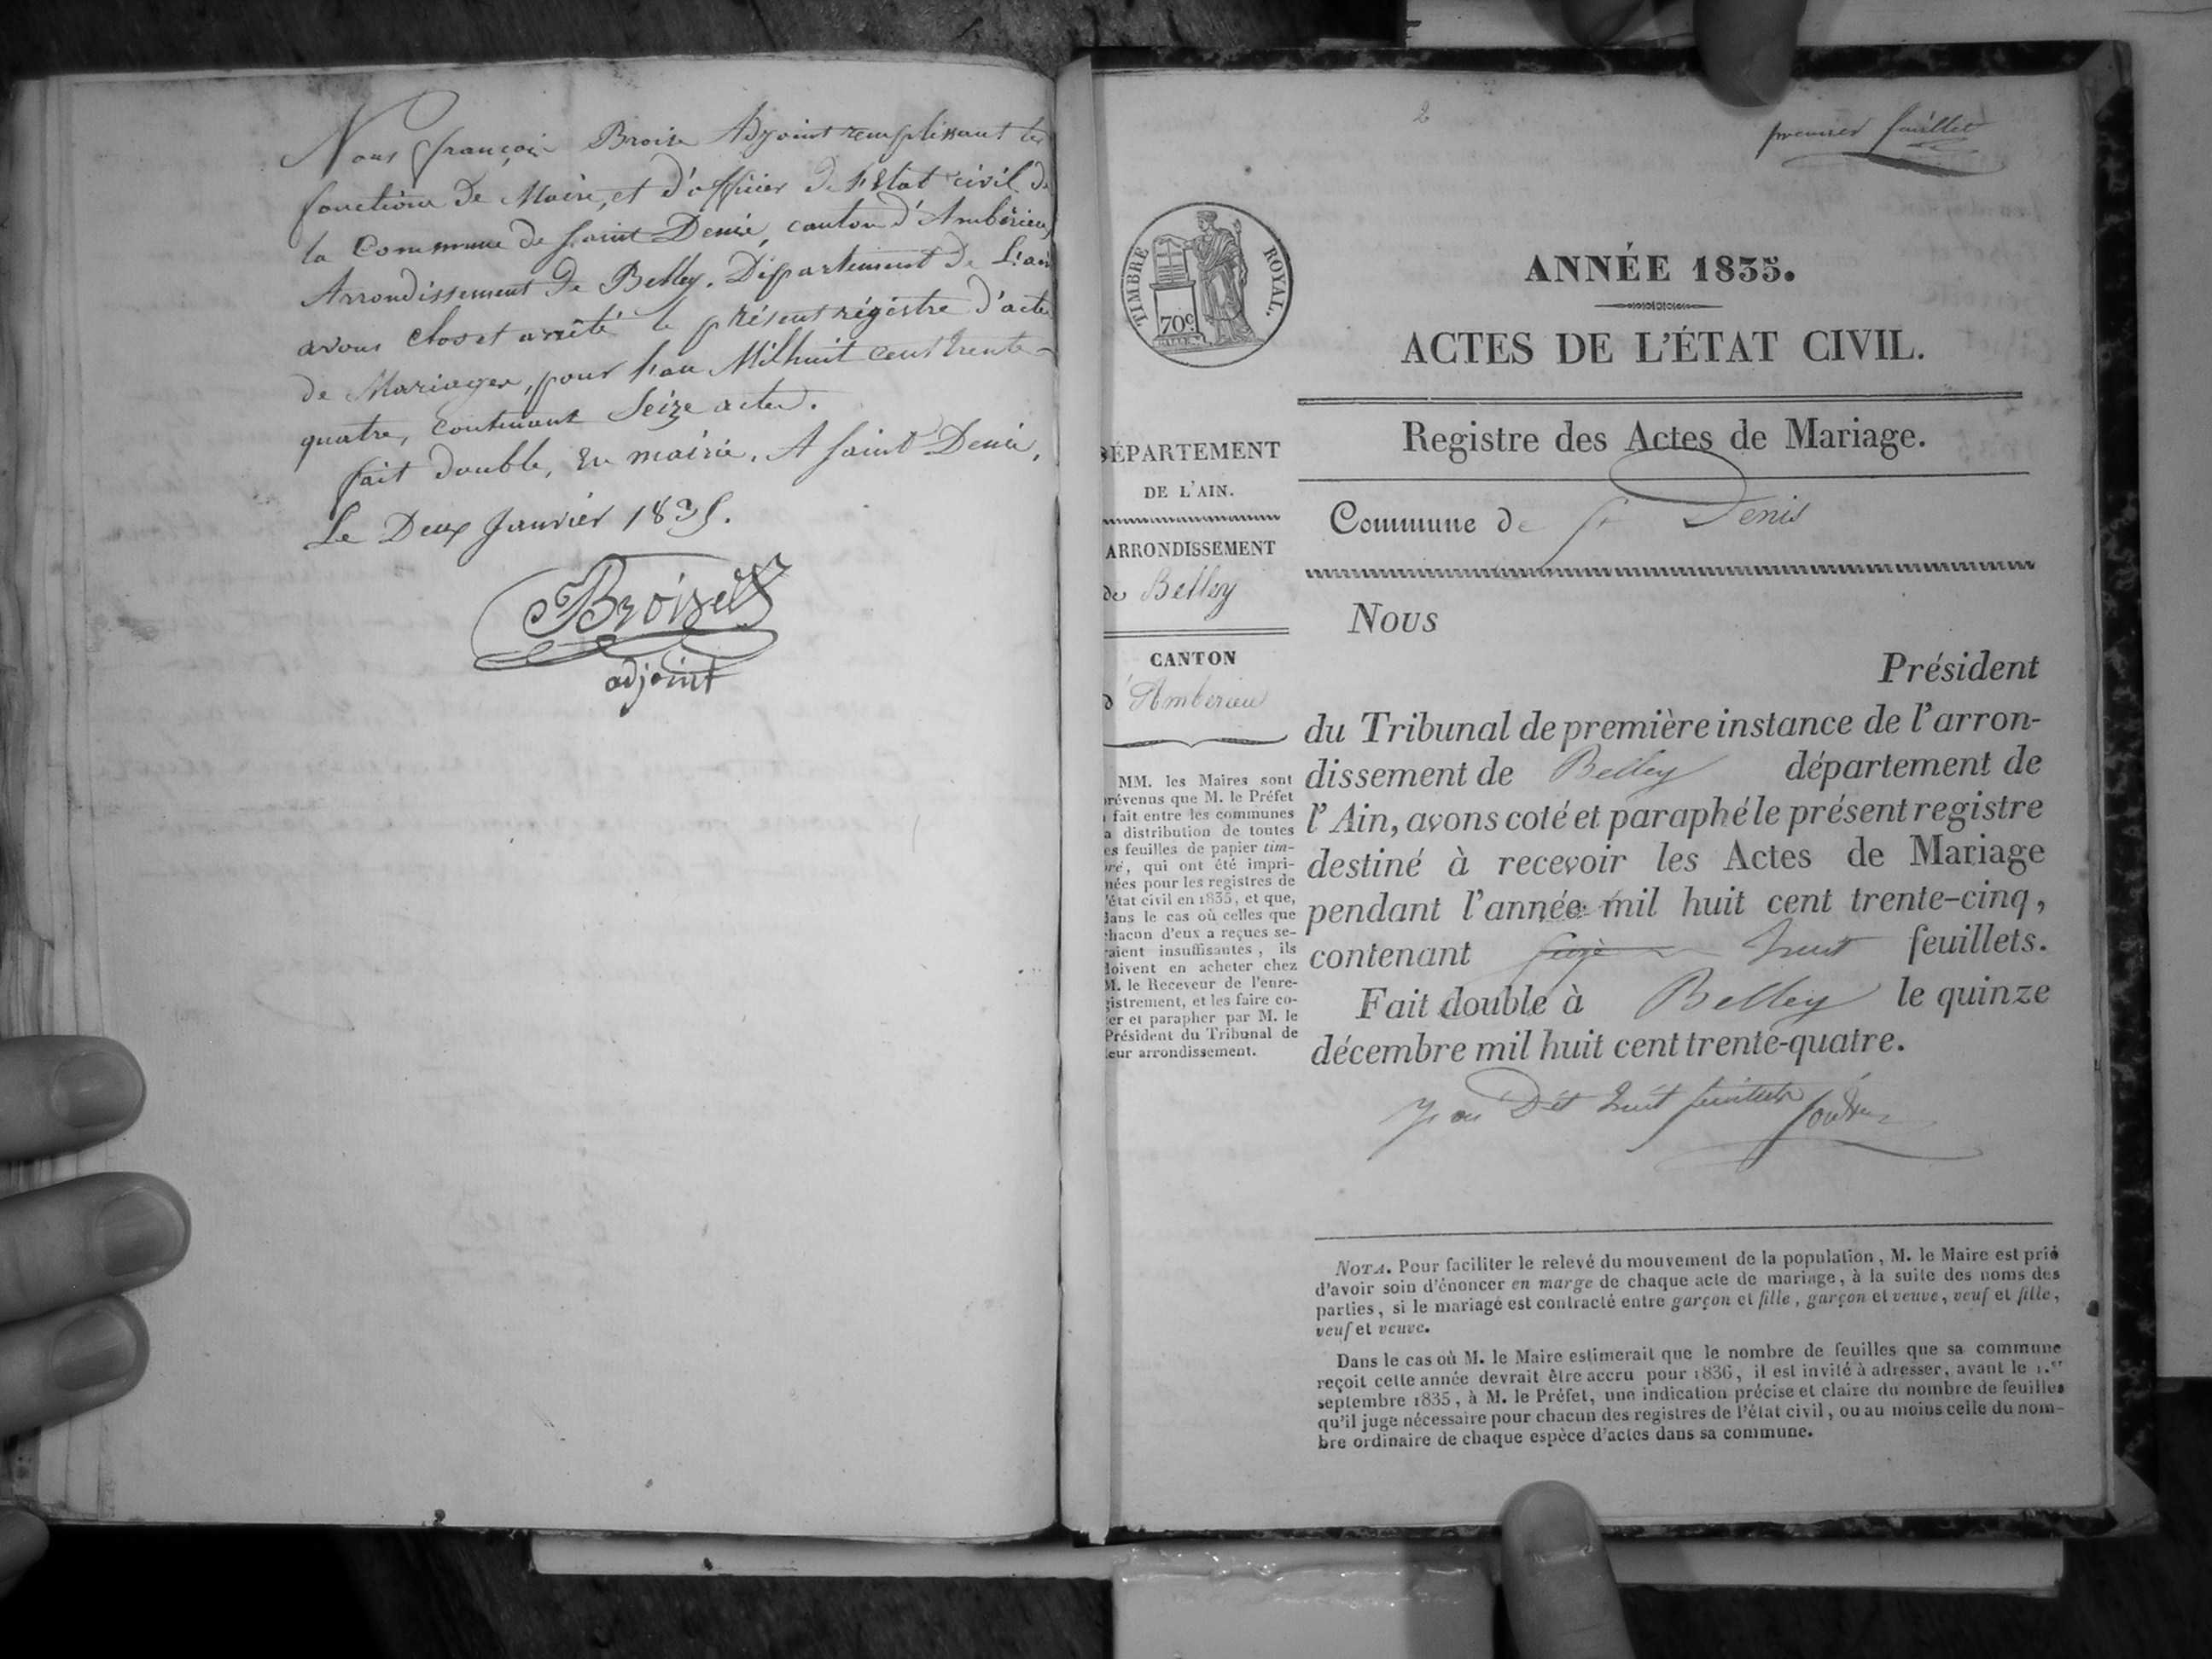 Nous françois Broise Adjoint remplissant les
fonctions De Maire, et d'officier de l'Etat civil de
la Commune de Saint Denis, canton d'Ambérieu,
Arrondissement De Belley, Département De L'ain
avons clos et arrêté le présent régistre d'actes
de Mariages, pour l'an Mil huit cent trente-
quatre, contenant Seize actes.
fait double, En mairie, A Saint Denis,
Le Deux Janvier 1835.
Broize
adjoint
2
premier feuillet
TIMBRE ROYAL.
70c
ANNÉE 1835.
ACTES DE L'ÉTAT CIVIL.
Registre des Actes de Mariage.
Commune de St Denis
DÉPARTEMENT
DE L'AIN.
ARRONDISSEMENT
de Belley
CANTON
d'Amberieu
MM. les Maires sont
prévenus que M. le Préfet
a fait entre les communes
la distribution de toutes
les feuilles de papier tim-
bré, qui ont été impri-
mées pour les registres de
l'état civil en 1835, et que,
dans le cas où celles que
chacun d'eux a reçues se-
raient insuffisantes, ils
doivent en acheter chez
M. le Receveur de l'enre-
gistrement, et les faire co-
ter et parapher par M. le
Président du Tribunal de
leur arrondissement.
Nous
Président
du Tribunal de première instance de l'arron-
dissement de Belley département de
l'Ain, avons coté et paraphé le présent registre
destiné à recevoir les Actes de Mariage
pendant l'année mil huit cent trente-cinq,
contenant huit feuillets.
Fait double à Belley le quinze
décembre mil huit cent trente-quatre.
Dit huit feuillets
NOTA. Pour faciliter le relevé du mouvement de la population, M. le Maire est prié
d'avoir soin d'énoncer en marge de chaque acte de mariage, à la suite des noms des
parties, si le mariage est contracté entre garçon et fille, garçon et veuve, veuf et fille,
veuf et veuve.
Dans le cas où M. le Maire estimerait que le nombre de feuilles que sa commune
reçoit cette année devrait être accru pour 1836, il est invité à adresser, avant le 1.er
septembre 1835, à M. le Préfet, une indication précise et claire du nombre de feuilles
qu'il juge nécessaire pour chacun des registres de l'état civil, ou au moins celle du nom-
bre ordinaire de chaque espèce d'actes dans sa commune.